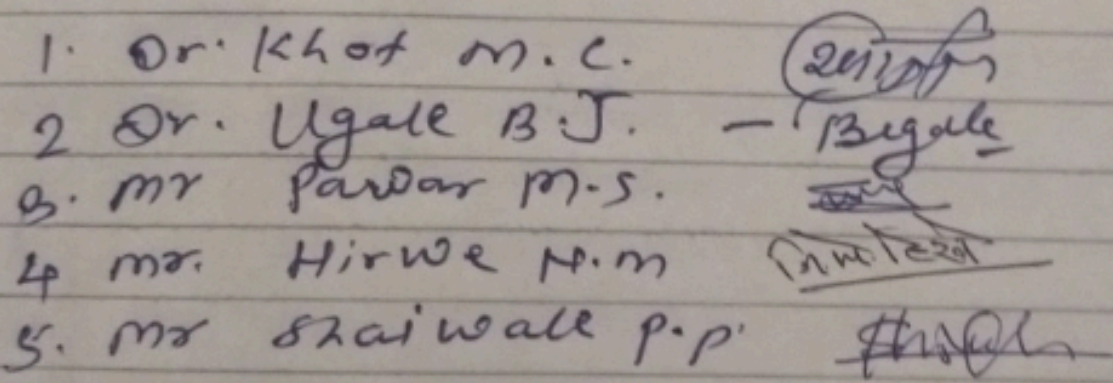 1. Dr. Khot M. C.
2 Dr. Ugale B.J. - Bugale
3. Mr Pawar M.S.
4 Mr. Hirwe N.M
5. Mr Shaiwale P.P.